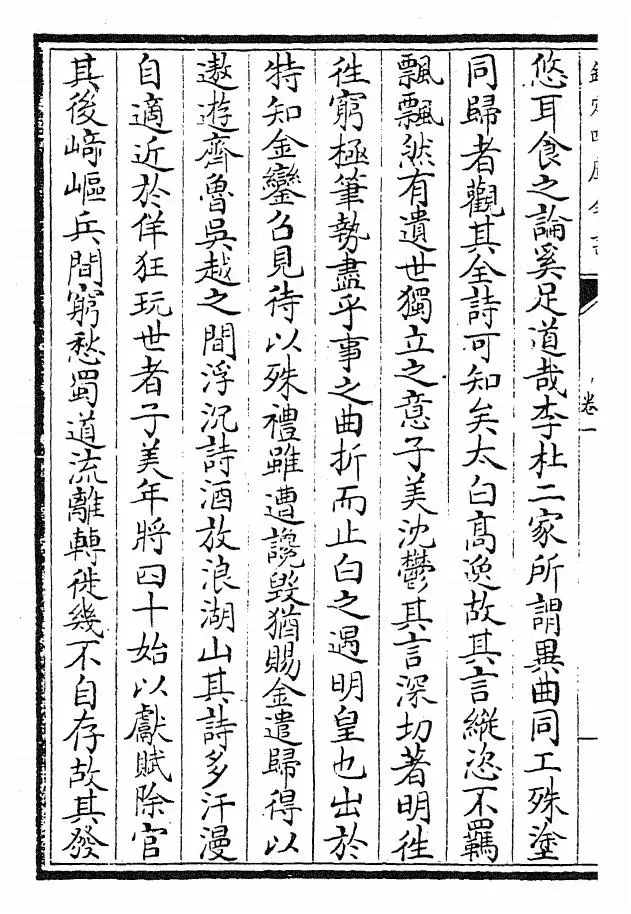 欽定四庫全書
卷一
悠耳食之論奚足道哉李杜二家所謂異曲同工殊塗
同歸者觀其全詩可知矣太白高逸故其言縱恣不羈
飄飄然有遺世獨立之意子美沈鬱其言深切著明徃
徃窮極筆勢盡乎事之曲折而止白之遇明皇也出於
特知金鑾召見待以殊禮雖遭讒毀猶賜金遣歸得以
遨遊齊魯吳越之間浮沉詩酒放浪湖山其詩多汗漫
自適近於佯狂玩世者子美年將四十始以獻賦除官
其後﨑嶇兵間窮愁蜀道流離轉徙幾不自存故其發